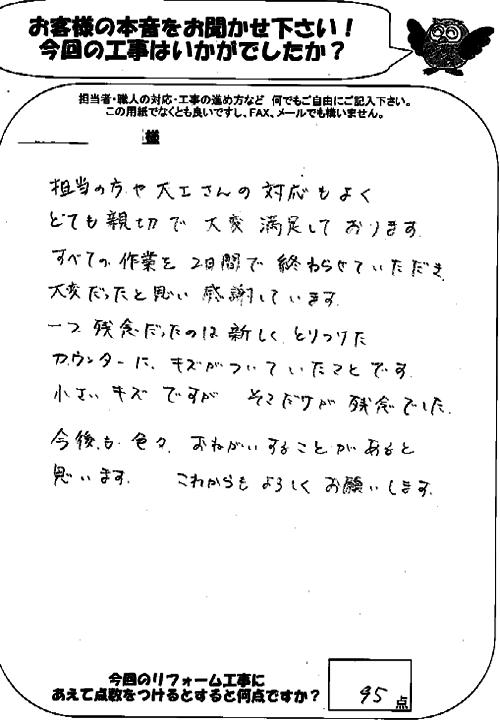 お客様の本音をお聞かせ下さい！
今回の工事はいかがでしたか？
担当者・職人の対応・工事の進め方など 何でもご自由にご記入下さい。
この用紙でなくとも良いですし、FAX、メールでも構いません。
様
担当の方や大工さんの対応もよく
とても親切で大変満足しております。
すべての作業を2日間で終わらせていただき
大変だったと思い感謝しています。
一つ残念だったのは新しくとりつけた
カウンターに、キズがついていたことです。
小さいキズですがそこだけが残念でした。
今後も色々おねがいすることがあると
思います。 これからもよろしくお願いします。
今回のリフォーム工事に
あえて点数をつけるとすると何点ですか？ 95点